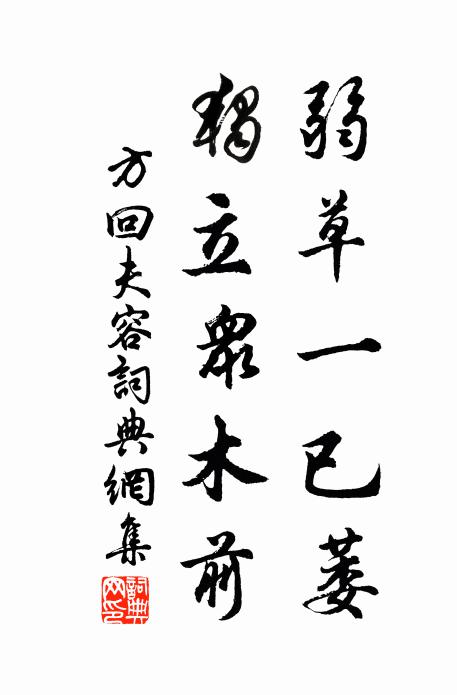 弱草一已萎
獨立眾木前
方回夫容詞典網集
詞典網印